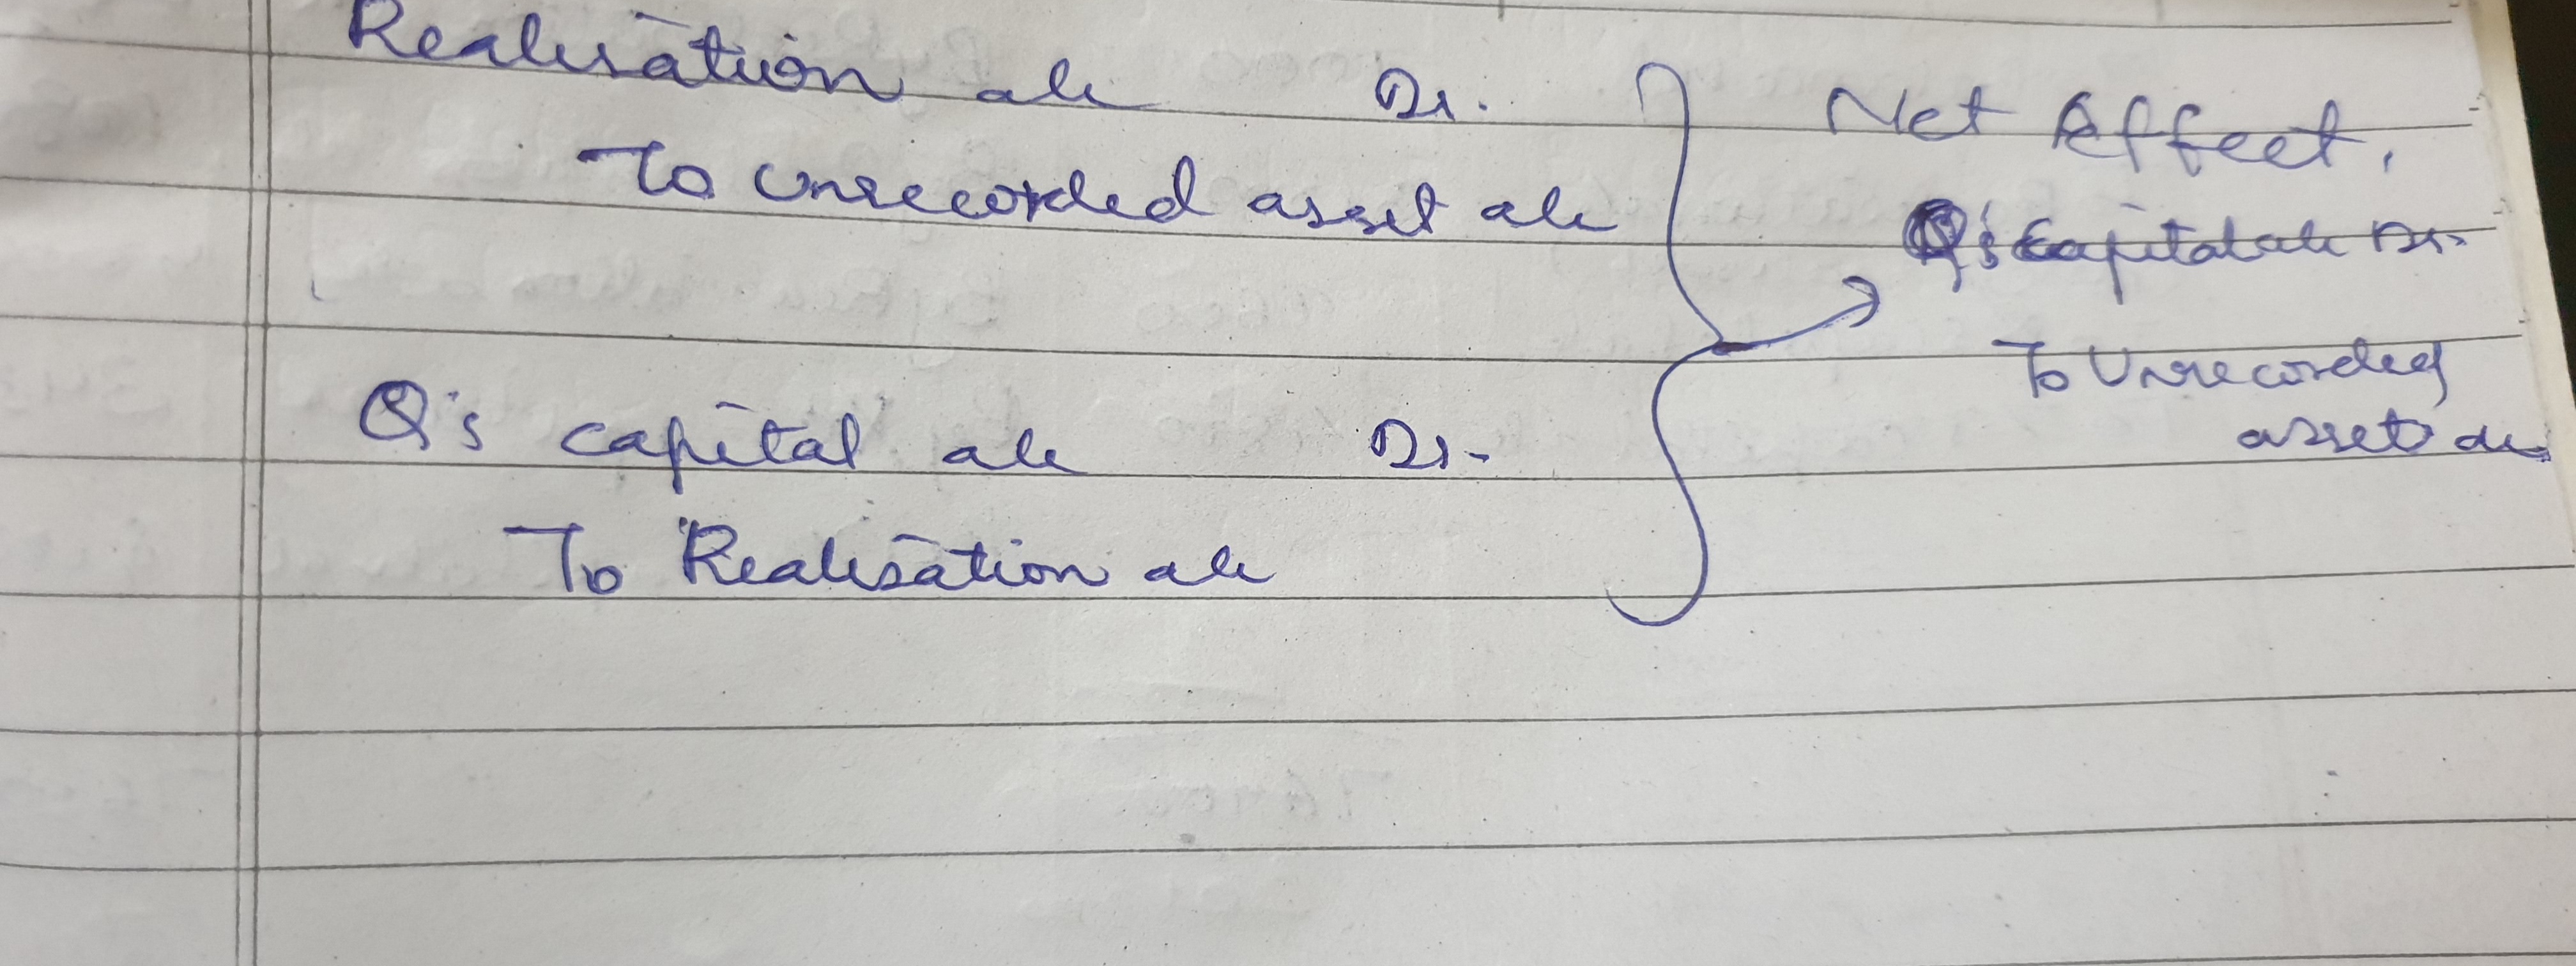 Realisation a/c Dr.
To unrecorded asset a/c
Q's capital a/c Dr.
To Realisation a/c
Net Effect,
Q's capital a/c Dr.
To Unrecorded
asset a/c